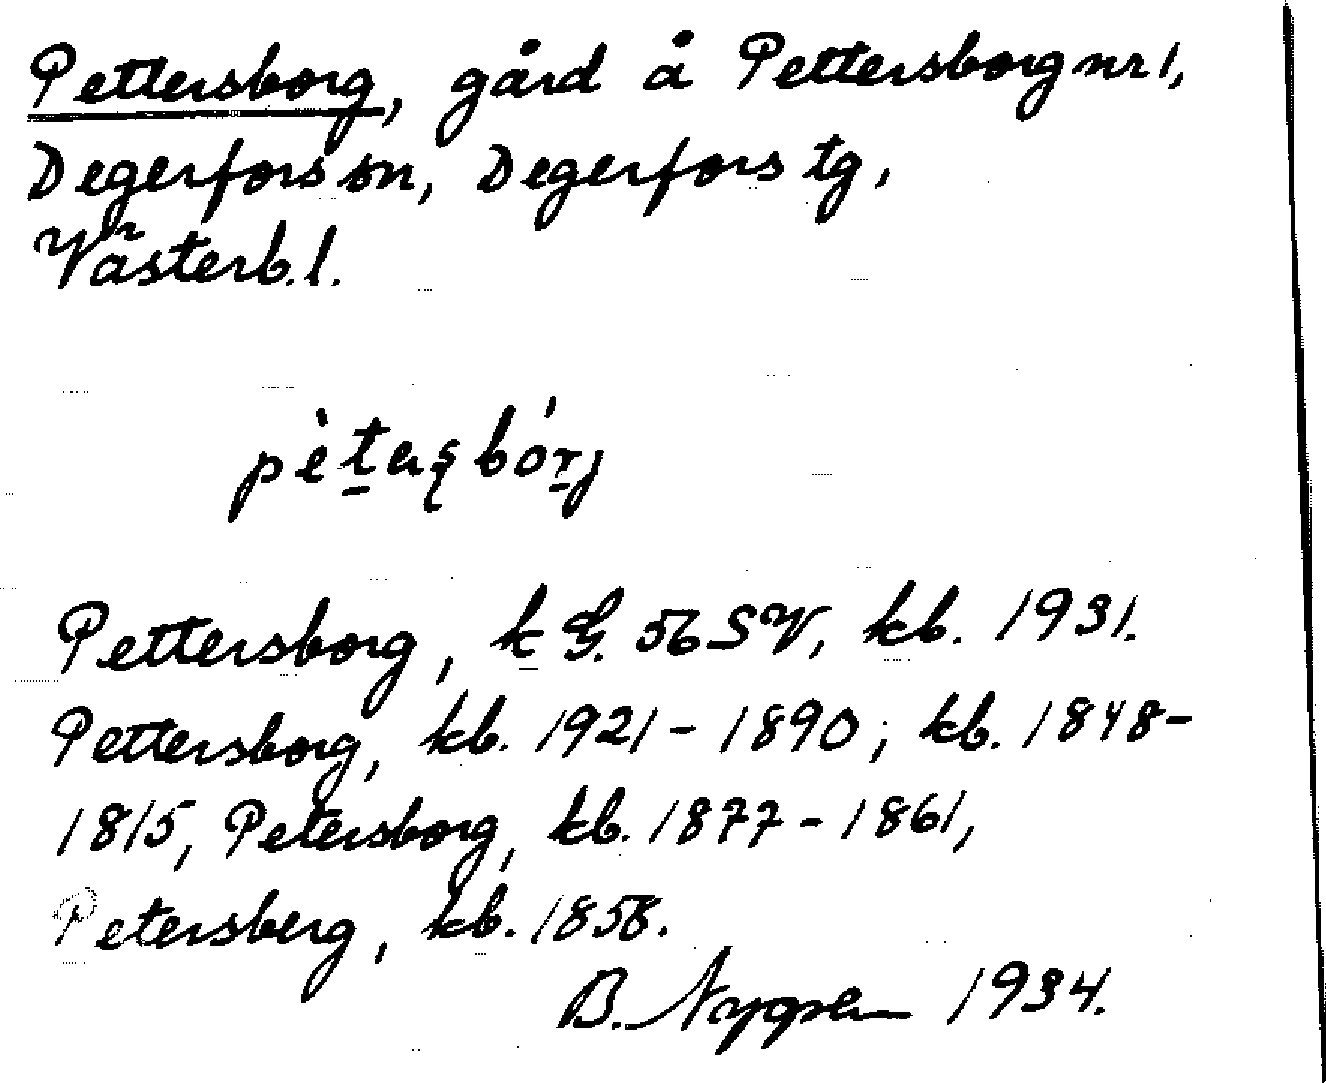 Pettersborg, gård å Pettersborg nr 1,
Degerfors sn, Degerfors tg,
Västerb. l.
pètaʂbórj
Pettersborg, k G. 56 SV, kb. 1931.
Pettersborg, kb. 1921-1890; kb. 1848-
1815, Petersborg, kb. 1877-1861,
Petersberg, kb. 1858.
B. 1934.